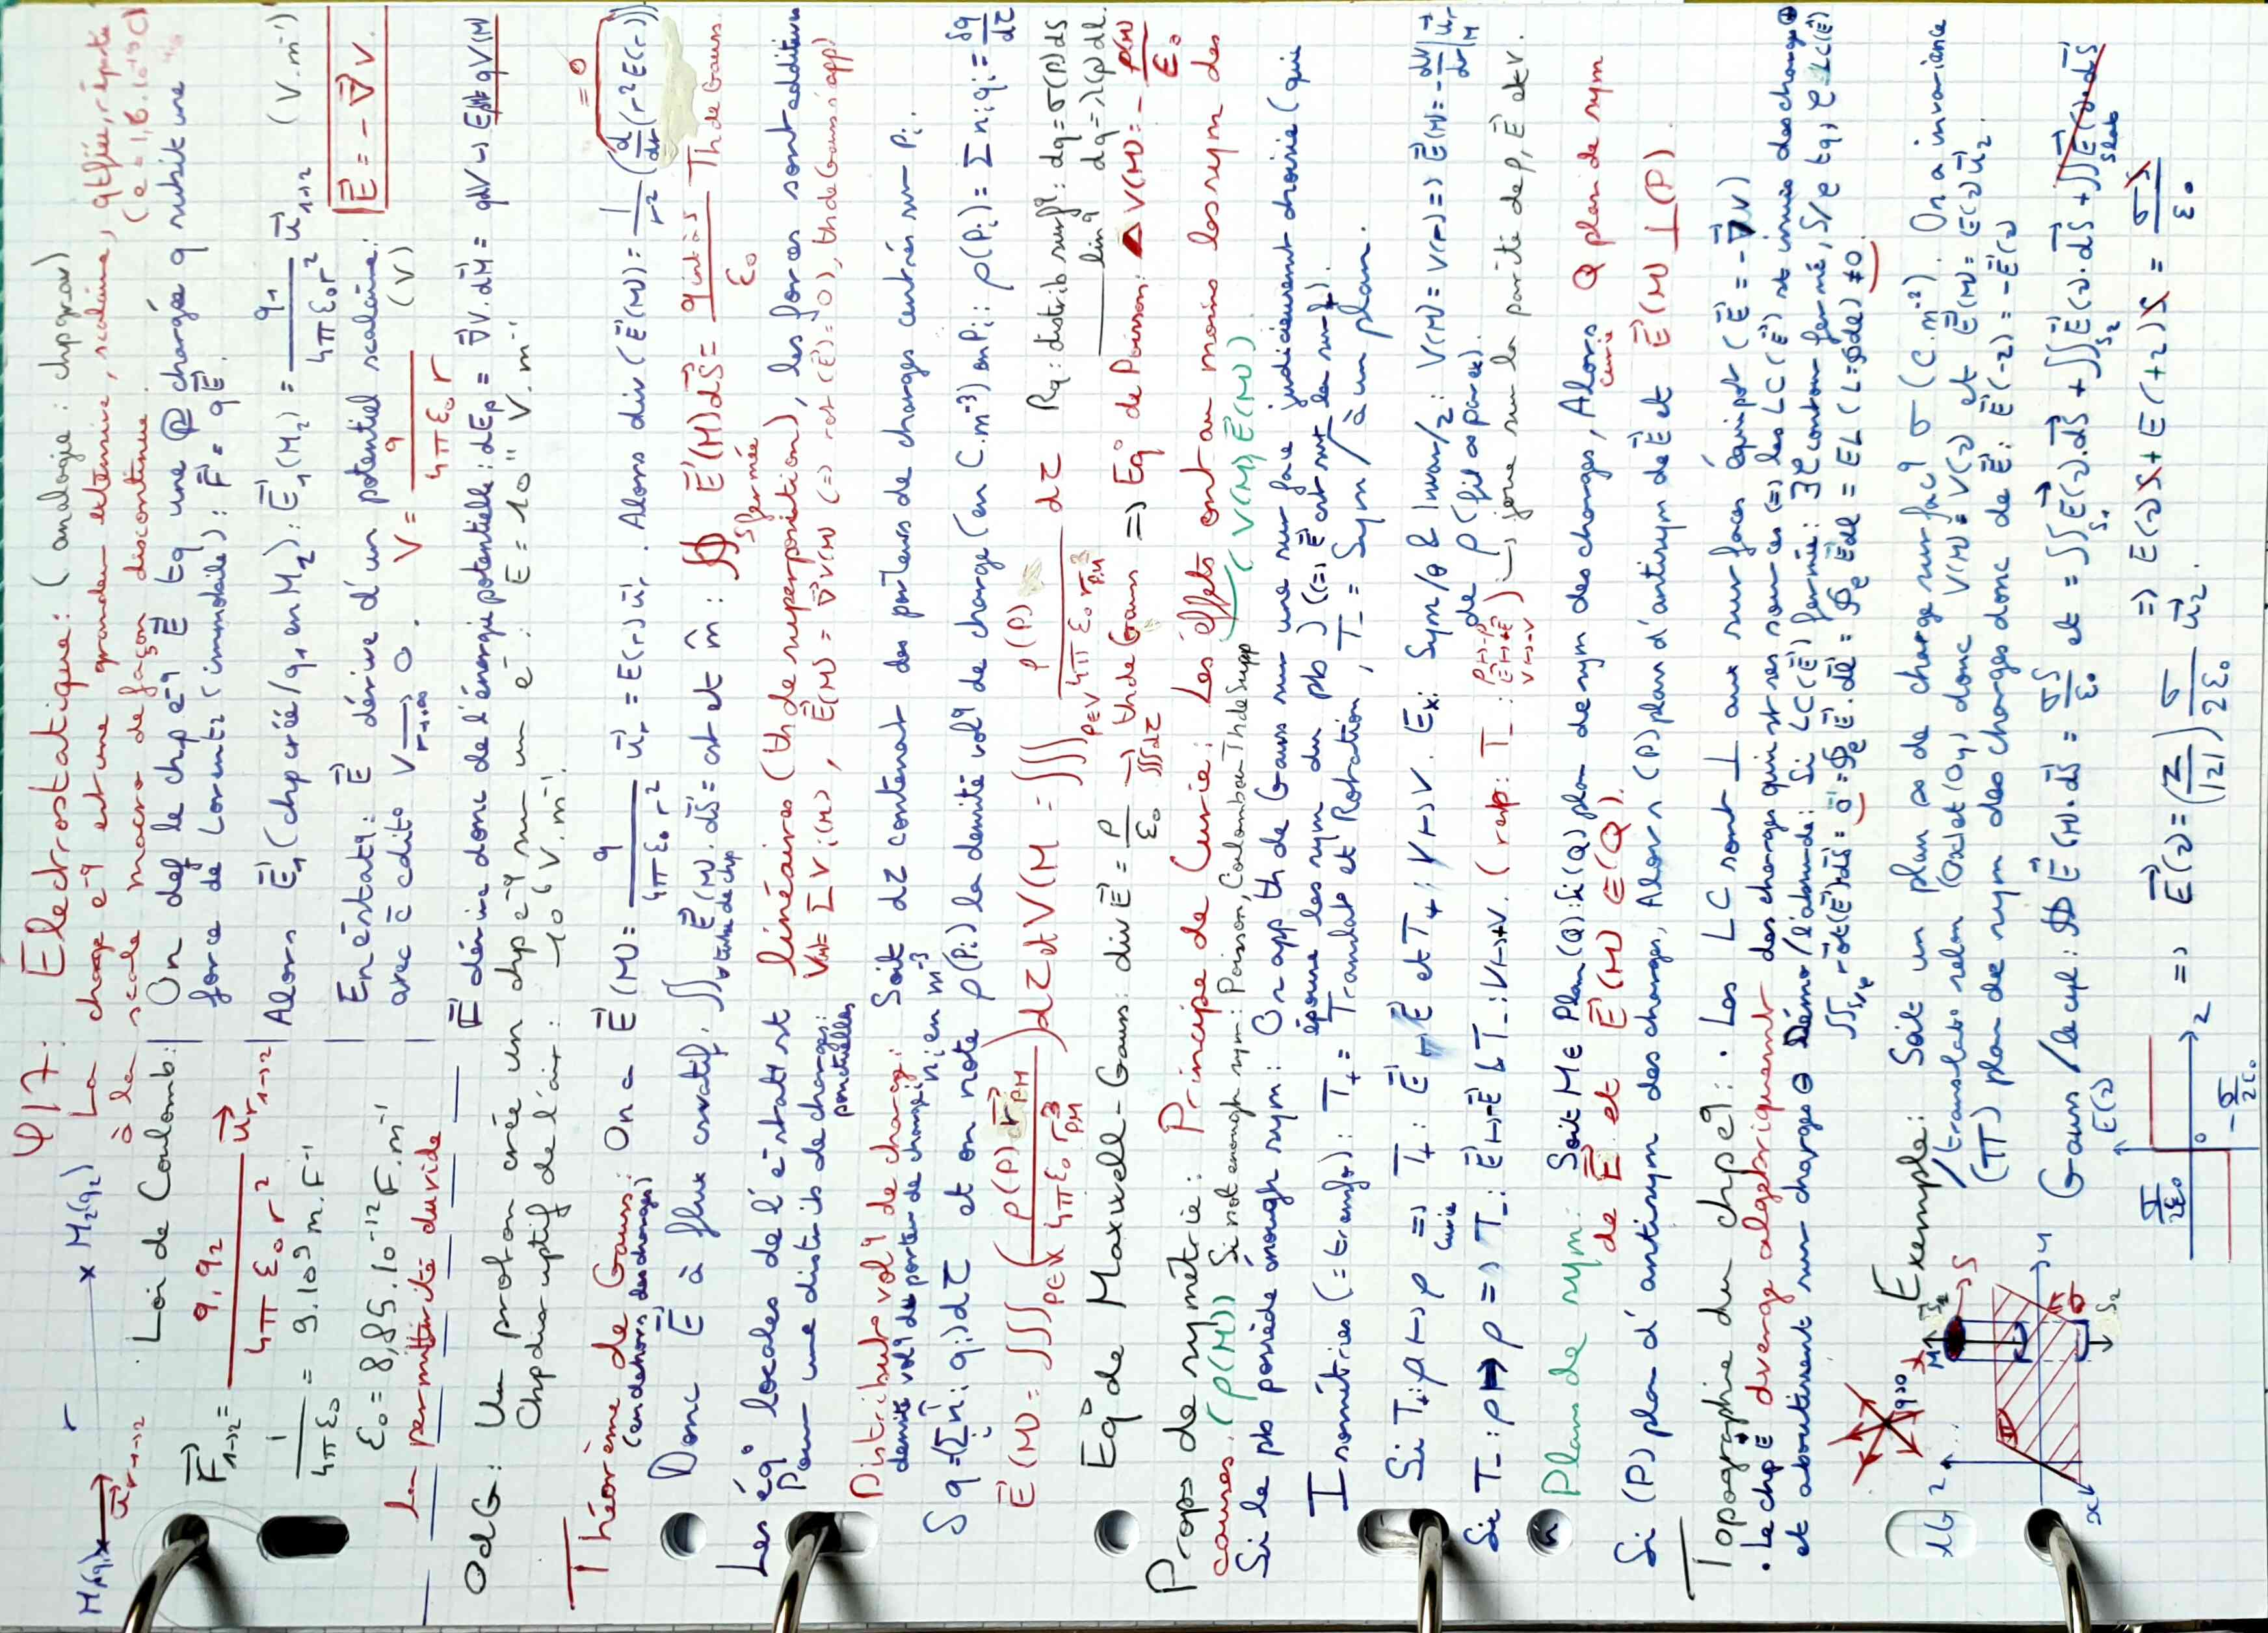 φ17: Électrostatique: (analogie: chp grav)
M1(q1) × r × M2(q2)
u⃗r1→2
La charge e^q est une grandeur extensive, scalaire, qtfiée, répartie
à la scale macro de façon discontinue. (e = 1,6.10⁻¹⁹ C)
Loi de Coulomb:
F⃗1→2 = q1 q2 / 4π ε0 r² u⃗r1→2
1/4πε0 = 9.10⁹ m.F⁻¹
ε0 = 8,85.10⁻¹² F.m⁻¹
La permittivité du vide
On def le chp e^q E⃗ tq une Ⓟ chargée q subit une
force de Lorentz (immobile): F⃗ = qE⃗.
Alors E⃗1 (chp créé / q1 en M2): E⃗1(M2) = q1 / 4π ε0 r² u⃗1→2 (V.m⁻¹)
En estat^q: E⃗ dérive d'un potentiel scalaire: E⃗ = - ∇⃗V.
avec ē cdito V → 0 r→∞. V = q / 4π ε0 r (V)
F⃗ dérive donc de l'énergie potentielle: dEp = ∇⃗V.dM⃗ = qdV ↳ Ep = qV(M)
OdG: Un proton crée un chp e^q sur un e⁻: E = 10¹¹ V.m⁻¹
Chp disruptif de l'air: ~10⁶ V.m⁻¹.
Théorème de Gauss: On a E⃗(M) = q / 4π ε0 r² u⃗r = E(r) u⃗r. Alors div(E⃗(M)) = 1/r² (d/dr (r² E(r))) = 0
(en dehors des charges)
Donc E⃗ à flux csvatif, ∬ E⃗(M).dS⃗ = cst et m̂: ∯ S fermée E⃗(M)dS⃗ = q int à S / ε0 Th de Gauss.
∀ tube de chp
Les éq° locales de l'éstat^q st linéaires (th de superposition), les forces sont additives
Pour une distrib de charges ponctuelles: V(M) = Σ Vi(M), E⃗(M) = ∇⃗V(M) (⇒ rot(E⃗) = 0), th de Gauss s'app)
Distributo vol^q de charge: Soit dτ contenant des porteurs de charges centrés sur Pi.
densité vol^q de porteur de charge i ni en m⁻³
δq = (Σ ni qi)dτ et on note ρ(Pi) la densité vol^q de charge (en C.m⁻³) en Pi: ρ(Pi) = Σ ni qi = δq/dτ
E⃗(M) = ∭ P∈V (ρ(P) r⃗PM / 4π ε0 r³PM) dτ et V(M) = ∭ P∈V ρ(P) / 4π ε0 rPM dτ
Rq: distrib surf^q: dq = σ(P)dS
lin^q dq = λ(P)dl.
Eq° de Maxwell-Gauss: div E⃗ = ρ/ε0 → ∭dτ th de Gauss ⇒ Eq° de Poisson: ΔV(M) = - ρ(M)/ε0
Props de symétrie: Principe de Curie: Les effets ont au moins les sym des
causes. (ρ(M)) (V(M), E⃗(M))
Si not enough sym: Poisson, Coulomb ou Th de Supp
Si le pb possède enough sym: On app th de Gauss sur une surface judicieusement choisie (qui
épouse les sym du pb) (⇒ E⃗ est cst sur la surf).
Isométries (= transf°): T+ = Translat° et Rotation, T- = Sym / à un plan.
Si T+: ρ ↦ ρ ⇒ Curie T+: E⃗ ↦ E⃗ et T+: V ↦ V. Ex: Sym/θ & Invar/z: V(M) = V(r) ⇒ E⃗(M) = - dV/dr|M u⃗r
de ρ (fil ∞ par ex).
Si T-: ρ ↦ ρ ⇒ T-: E⃗ ↦ -E⃗ & T-: V ↦ V. (resp: T-: ρ ↦ -ρ E⃗ ↦ +E⃗ V ↦ -V) ↳ joue sur la parité de ρ, E⃗ et V.
Plans de sym: Soit M ∈ Plan (Q): Si (Q) plan de sym des charges, Alors Curie Q plan de sym
de E⃗ et E⃗(M) ∈ (Q).
Si (P) plan d'antisym des charges, Alors (P) plan d'antisym de E⃗ et E⃗(M) ⊥ (P).
Topographie du chp e^q: • Les LC sont ⊥ aux surfaces équipot (E⃗ = -∇⃗V)
• Le chp E⃗ diverge algébriquement des charges qui st ses sources (⇒ les LC(E⃗) st issues des charges ⊕
et aboutissent sur charges ⊖ Démo / l'absurde: Si LC(E⃗) fermée: ∃ C contour fermé, S/C tq, C = LC(E⃗)
∬S/C rot(E⃗)dS⃗ = 0 = ∮C E⃗.dl⃗ = ∮C Edl = EL (L = ∮dl) ≠ 0.
q>0
Exemple: Soit un plan ∞ de charge surfac^q σ (C.m⁻²). On a invariance
/translato selon (Ox) et (Oy) donc V(M) = V(z) et E⃗(M) = E(z)u⃗z.
(Π) plan de sym des charges donc de E⃗: E⃗(-z) = -E⃗(z)
Gauss / le cyl: ∯ E⃗(M).dS⃗ = σS/ε0 et = ∬S1 E⃗(z).dS⃗ + ∬S2 E⃗(z).dS⃗ + ∬Slat E⃗(z).dS⃗
⇒ E(z)S + E(+z)S = σS/ε0
⇒ E⃗(z) = (z/|z|) σ/2ε0 u⃗z.
E(z)
σ/2ε0
0
z
-σ/2ε0
z
M
S
S2
Π
x
y